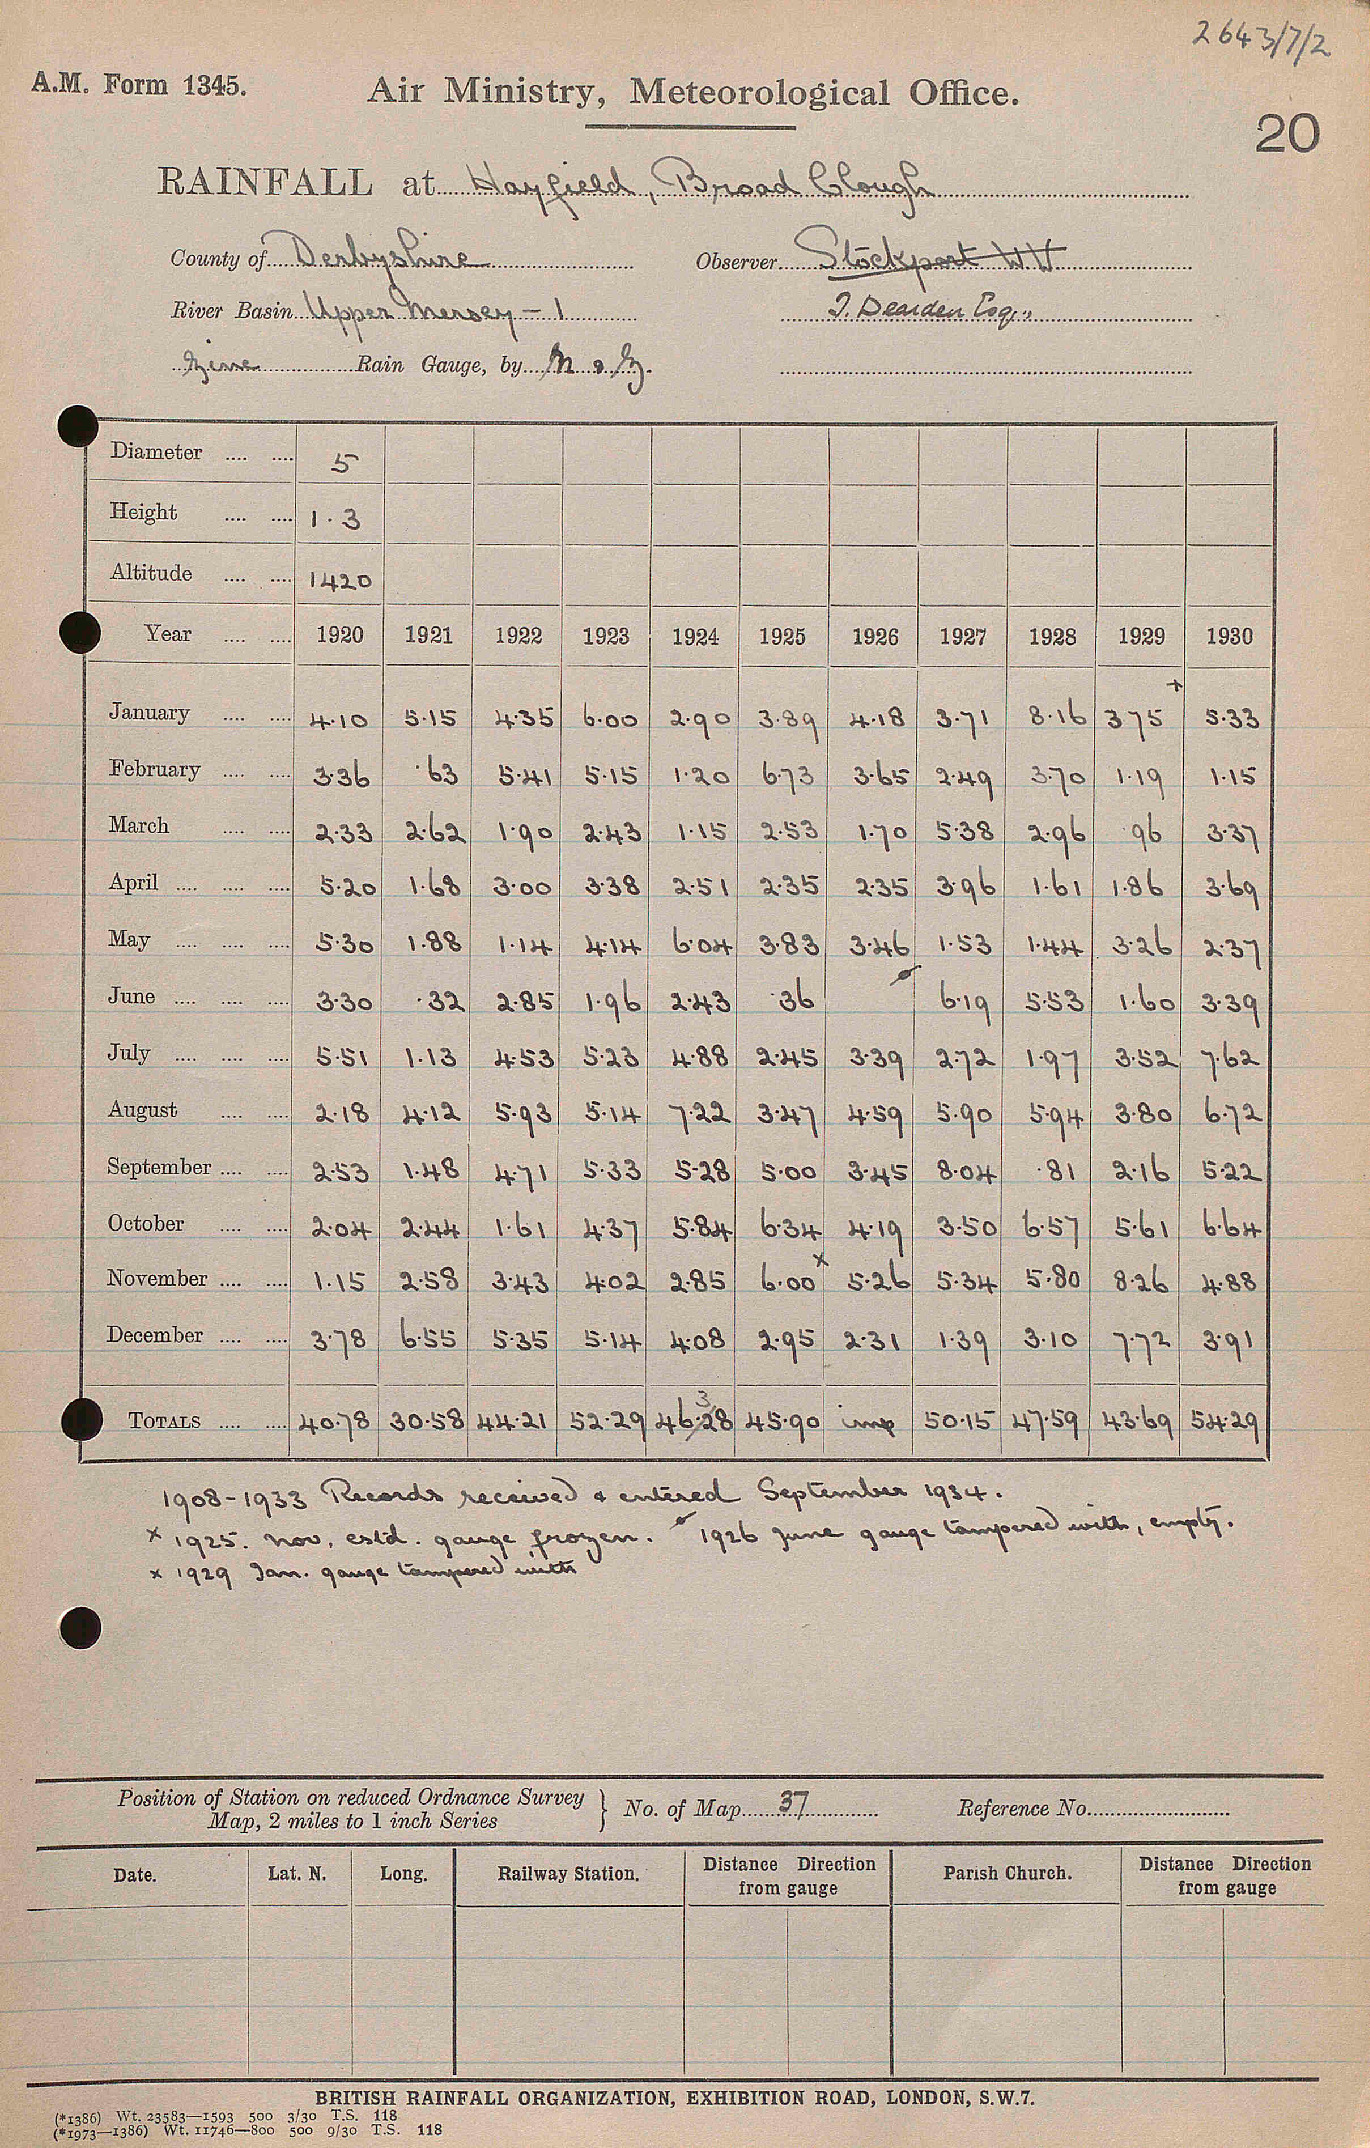 2643/7/2
A.M. Form 1345.
Air Ministry, Meteorological Office.
20
RAINFALL at Hayfield, Broad Clough
County of Derbyshire Observer Stockport W.W.
River Basin Upper Mersey – 1 J. Dearden Esq.,
Zinc Rain Gauge, by
Diameter .... .... 5
Height .... .... 1.3
Altitude .... .... 1420
Year .... .... 1920 1921 1922 1923 1924 1925 1926 1927 1928 1929 1930
January .... .... 4.10 5.15 4.35 6.00 2.90 3.89 4.18 3.71 8.16 3 75 + 5.33
February .... .... 3.36 .63 5.41 5.15 1.20 6.73 3.65 2.49 3.70 1.19 1.15
March .... .... 2.33 2.62 1.90 2.43 1.15 2.53 1.70 5.38 2.96 .96 3.37
April .... .... .... 5.20 1.68 3.00 3.38 2.51 2.35 2.35 3.96 1.61 1.86 3.69
May .... .... .... 5.30 1.88 1.14 4.14 6.04 3.83 3.46 1.53 1.44 3.26 2.37
June .... .... .... 3.30 .32 2.85 1.96 2.43 .36 6.19 5.53 1.60 3.39
July .... .... .... 5.51 1.13 4.53 5.23 4.88 2.45 3.39 2.72 1.97 3.52 7.62
August .... .... 2.18 4.12 5.93 5.14 7.22 3.47 4.59 5.90 5.94 3.80 6.72
September .... .... 2.53 1.48 4.71 5.33 5.28 5.00 3.45 8.04 .81 2.16 5.22
October .... .... 2.04 2.44 1.61 4.37 5.84 6.34 4.19 3.50 6.57 5.61 6.64
November .... .... 1.15 2.58 3.43 4.02 2.85 6.00 x 5.26 5.34 5.80 8.26 4.88
December .... .... 3.78 6.55 5.35 5.14 4.08 2.95 2.31 1.39 3.10 7.72 3.91
TOTALS .... .... 40.78 30.58 44.21 52.29 46.28 3 45.90 imp 50.15 47.59 43.69 54.29
1908-1933 Records received & entered September 1934.
x 1925. Nov. est'd. gauge frozen. 1926 June gauge tampered with, empty.
x 1929 Jan. gauge tampered with
Position of Station on reduced Ordnance Survey
Map, 2 miles to 1 inch Series } No. of Map 37 Reference No.
Date. Lat. N. Long. Railway Station. Distance Direction from gauge Parish Church. Distance Direction from gauge
BRITISH RAINFALL ORGANIZATION, EXHIBITION ROAD, LONDON, S.W.7.
(*1386) Wt. 23583—1593 500 3/30 T.S. 118
(*1973—1386) Wt. 11746—800 500 9/30 T.S. 118